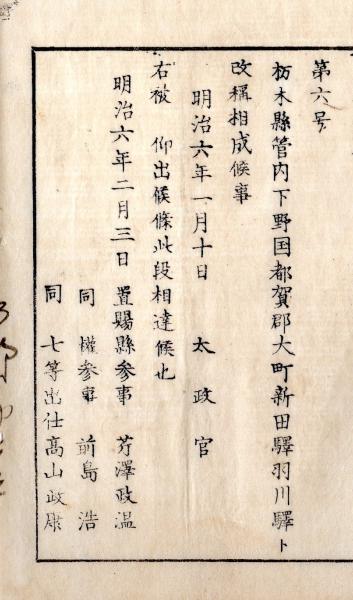 第六号
栃木縣管内下野国都賀郡大町新田驛羽川驛ト
改稱相成候事
明治六年一月十日　太政官
右被　仰出候條此段相達候也
明治六年二月三日　置賜縣参事　芹澤政温
同　權参事　前島　浩
同　七等出仕髙山政康